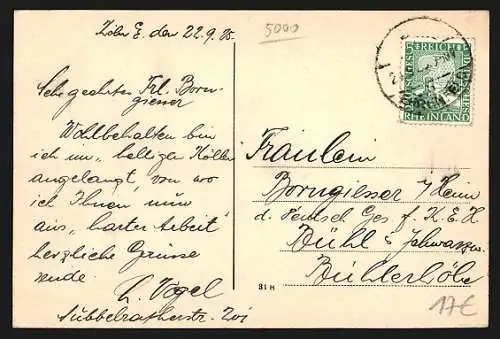 Köln E. den 22.9.25.
5000
Sehr geehrtes Frl. Born-
giesser
Wohlbehalten bin
ich im „heiligen Köllen
angelangt, von wo
ich Ihnen nun
aus „harter Arbeit"
herzliche Grüsse
sende.
L. Vogel
Subbelratherstr.
DEUTSCHES REICH
RHEINLAND
EHRENFELD
Fräulein
Borngiesser Heim
d. Deutsch Ges. f. K.E.H.
Bühl i. Schwarzw.
Bühlerhöhe
31 H
17€